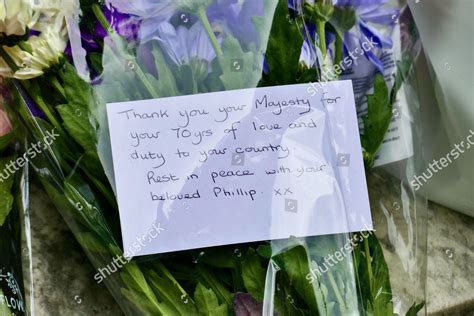 Thank you your Majesty for
your 70yrs of love and
duty to your country
Rest in peace with your
beloved Phillip. xx
shutterstock
shutterstock
shutterstock
shutterstock